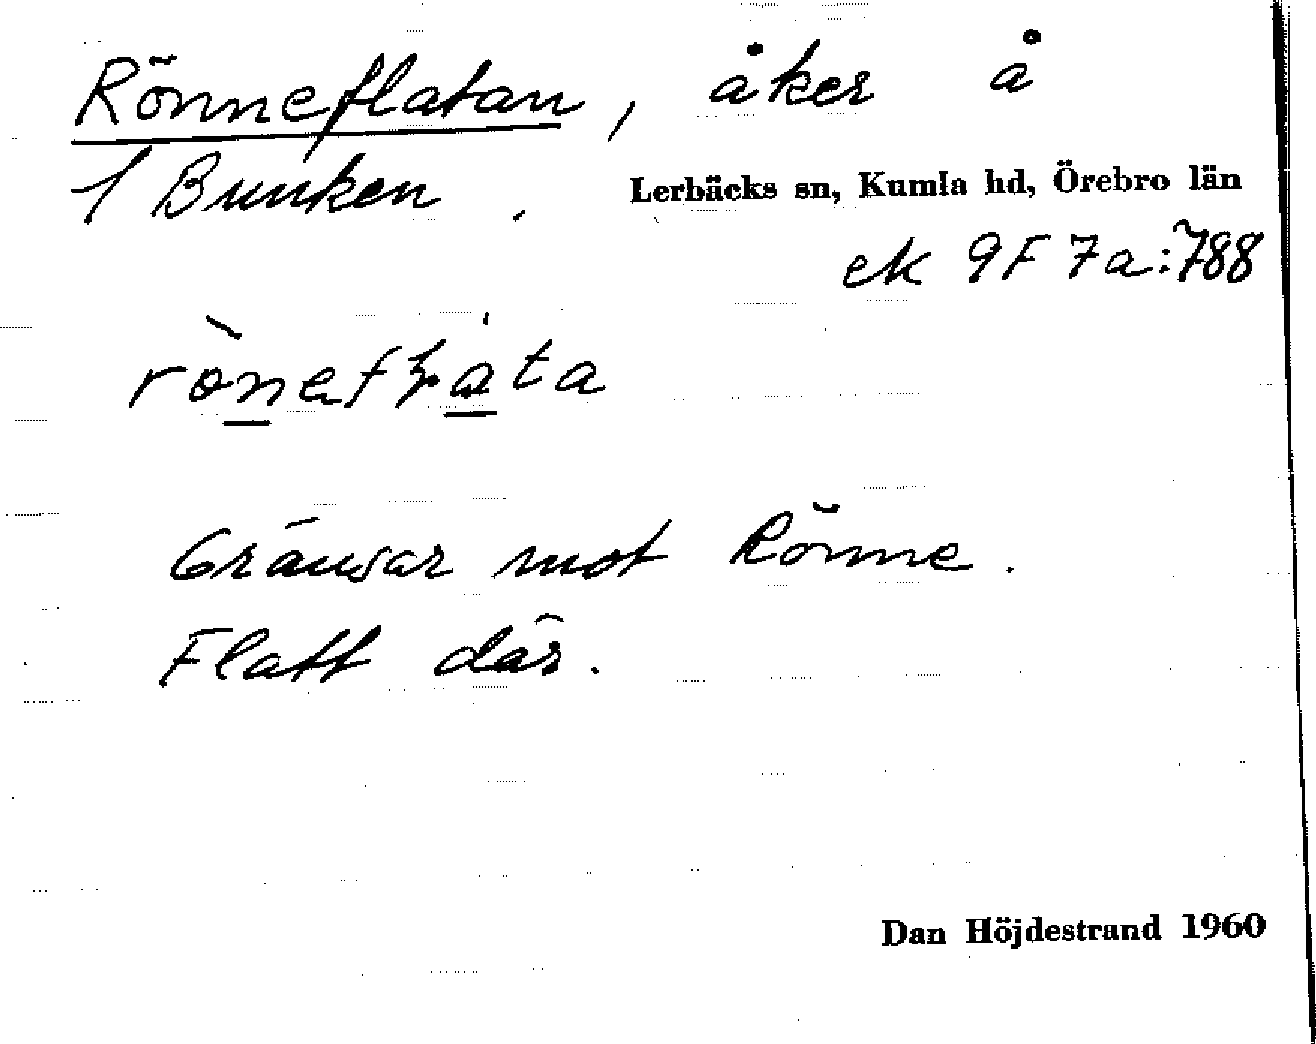 Rönneflatan, åker å
1 Bunken.
Lerbäcks sn, Kumla hd, Örebro län
ek 9F 7a:788
Gränsar mot Rönne.
Flatt där.
Dan Höjdestrand 1960